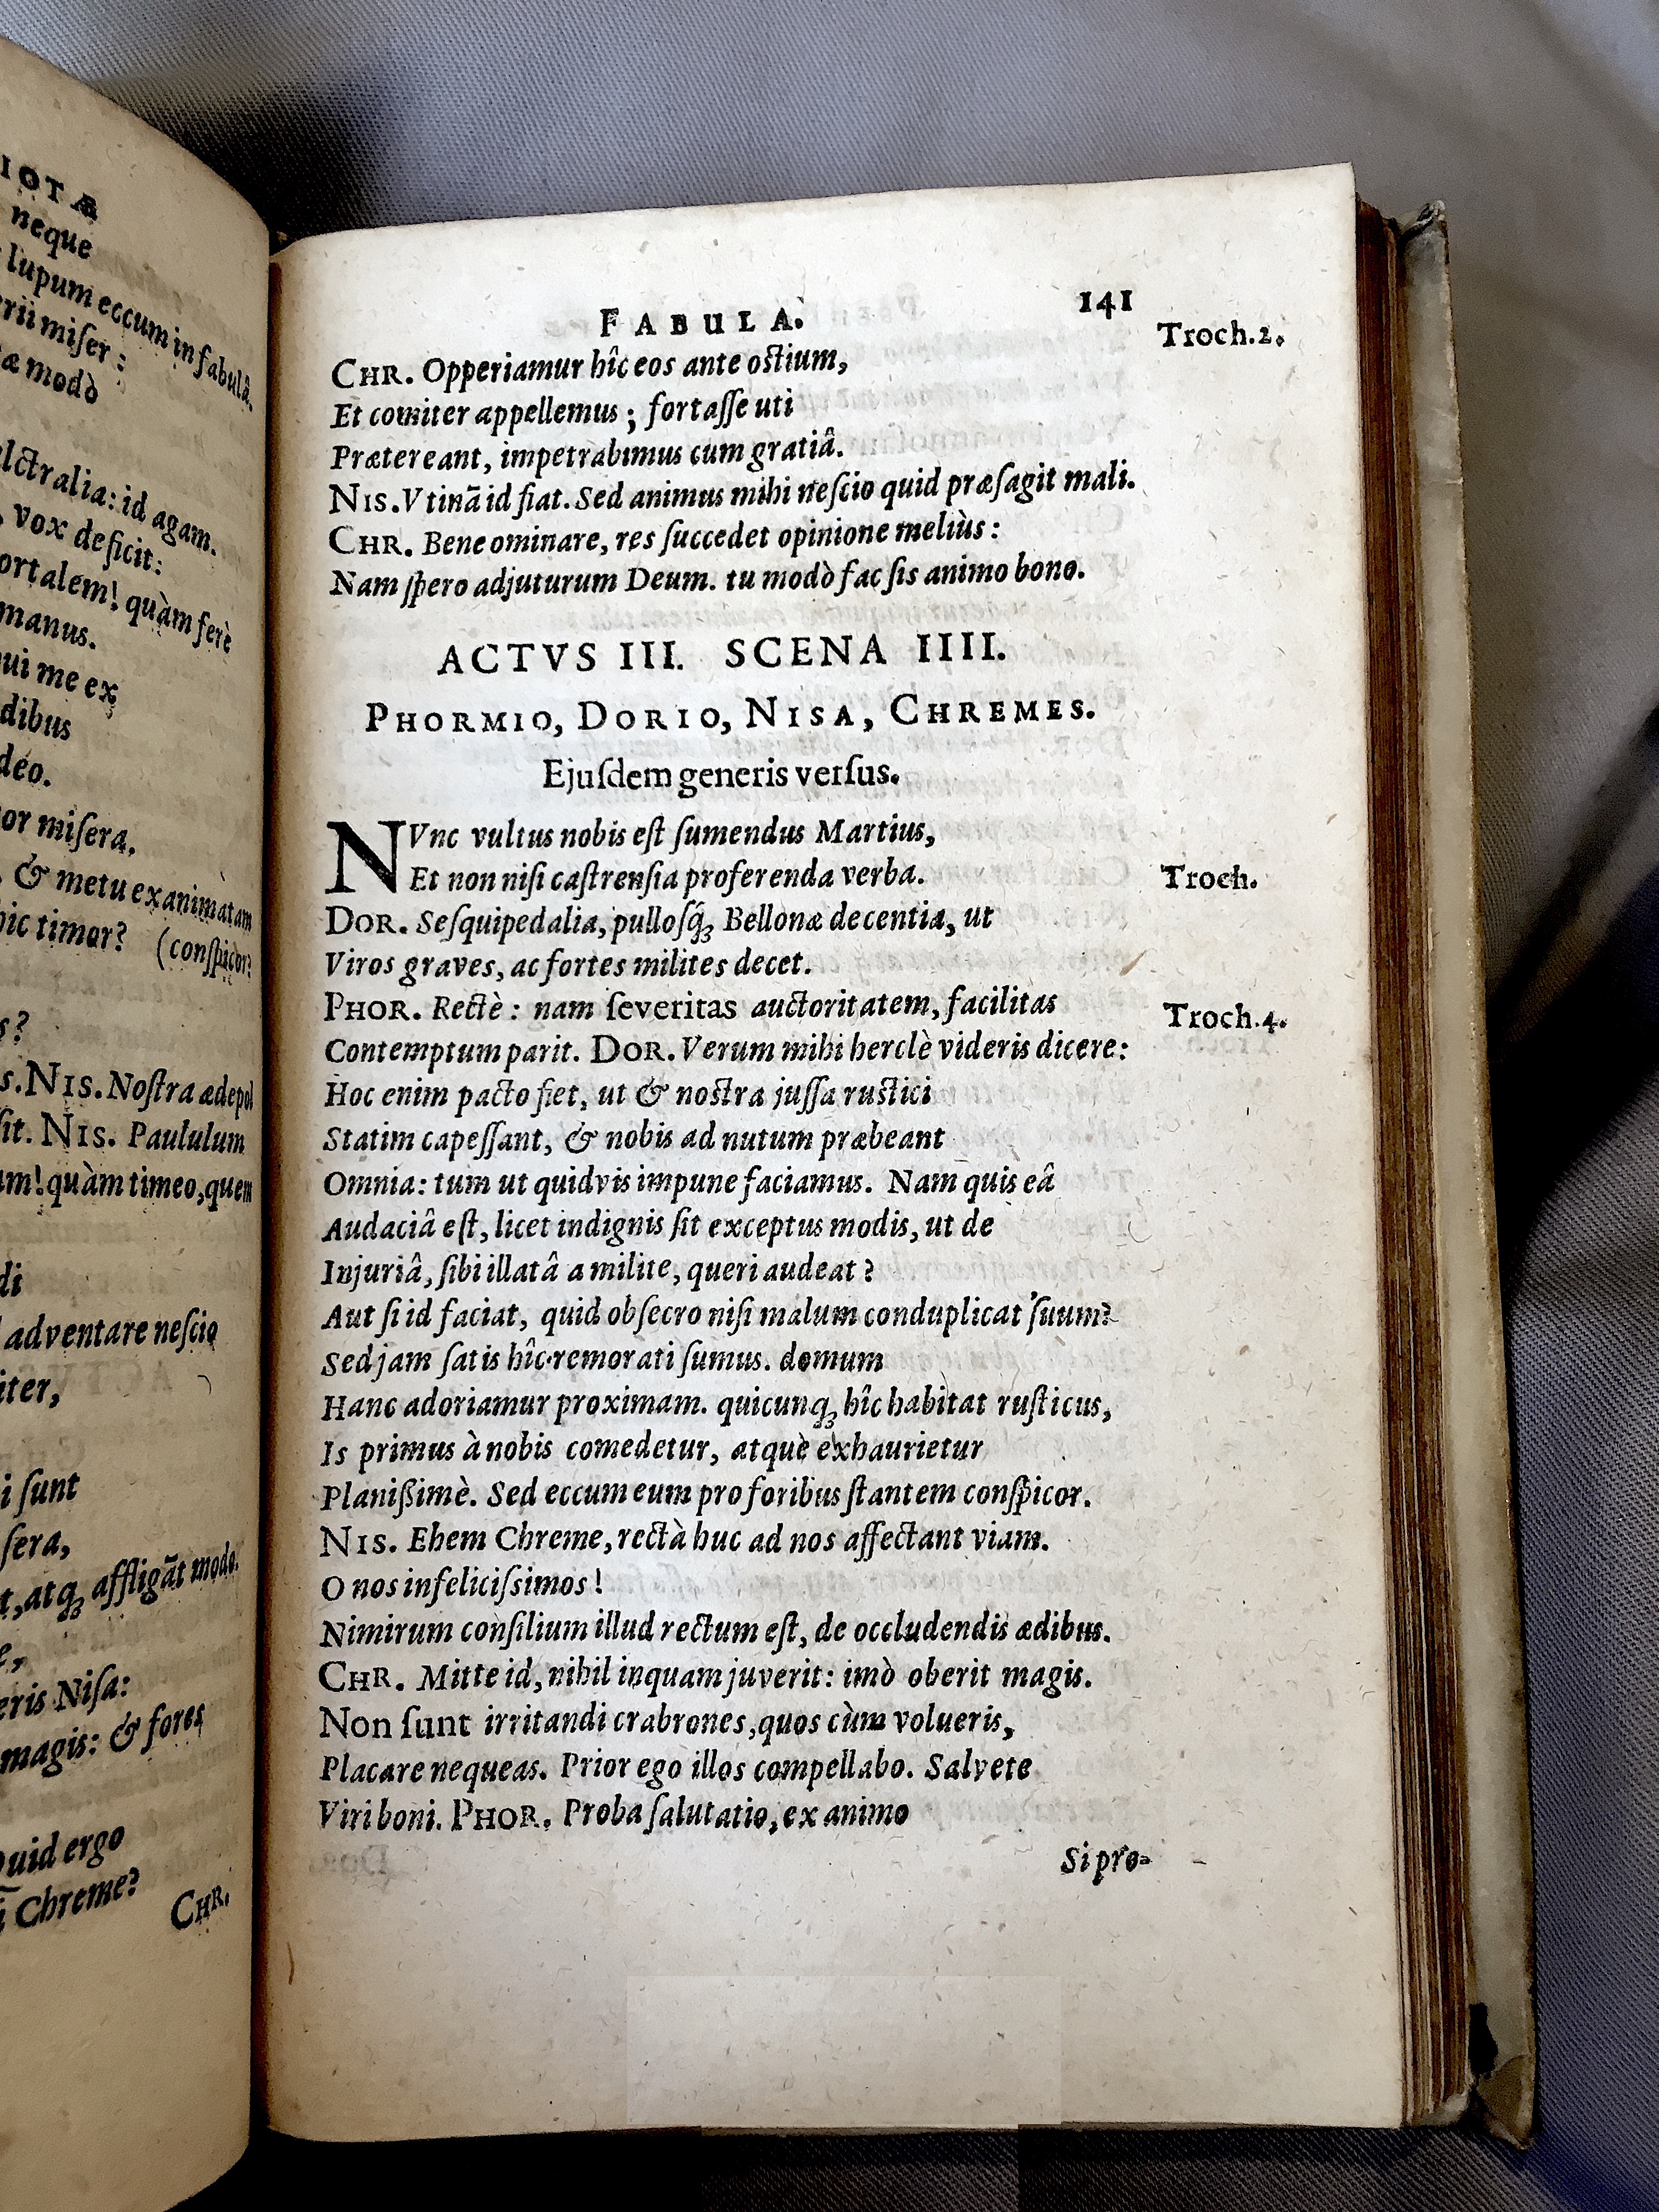 IOTÆ
neque
lupum eccum in fabulâ.
rii miſer:
æ modò
lctralia: id agam.
vox deficit:
ortalem! quàm ferè
manus.
ui me ex
dibus
deo.
or miſera,
& metu exanimàtam
hic timor? (conſpicor?
s?
s. NIS. Noſtra ædepol
ſit. NIS. Paululum
um! quàm timeo, quem
di
adventare neſcio
iter,
i ſunt
ſera,
t, atq; affligāt modo.
eris Niſa:
magis: & fores
Quid ergo
Chreme?
CHR.
FABULA. 141
CHR. Opperiamur hîc eos ante oſtium, Troch.2.
Et comiter appellemus; fortaſſe uti
Prætereant, impetrabimus cum gratiâ.
NIS. Vtinā id fiat. Sed animus mihi neſcio quid præſagit mali.
CHR. Bene ominare, res ſuccedet opinione meliùs:
Nam ſpero adjuturum Deum. tu modò fac ſis animo bono.
ACTVS III. SCENA IIII.
PHORMIO, DORIO, NISA, CHREMES.
Ejuſdem generis verſus.
NVnc vultus nobis eſt ſumendus Martius,
Et non niſi caſtrenſia proferenda verba. Troch.
DOR. Seſquipedalia, pulloſq́; Bellonæ decentia, ut
Viros graves, ac fortes milites decet.
PHOR. Rectè: nam ſeveritas auctoritatem, facilitas Troch.4.
Contemptum parit. DOR. Verum mihi herclè videris dicere:
Hoc enim pacto fiet, ut & noſtra juſſa ruſtici
Statim capeſſant, & nobis ad nutum præbeant
Omnia: tum ut quidvis impune faciamus. Nam quis eâ
Audaciâ eſt, licet indignis ſit exceptus modis, ut de
Injuriâ, ſibi illatâ a milite, queri audeat?
Aut ſi id faciat, quid obſecro niſi malum conduplicat ſuum?
Sed jam ſatis hîc remorati ſumus. domum
Hanc adoriamur proximam. quicunq; hîc habitat ruſticus,
Is primus à nobis comedetur, atquè exhaurietur
Planißimè. Sed eccum eum pro foribus ſtantem conſpicor.
NIS. Ehem Chreme, rectà huc ad nos affectant viam.
O nos infeliciſsimos!
Nimirum conſilium illud rectum eſt, de occludendis ædibus.
CHR. Mitte id, nihil inquam juverit: imò oberit magis.
Non ſunt irritandi crabrones, quos cùm volueris,
Placare nequeas. Prior ego illos compellabo. Salvete
Viri boni. PHOR. Proba ſalutatio, ex animo
Si pro-